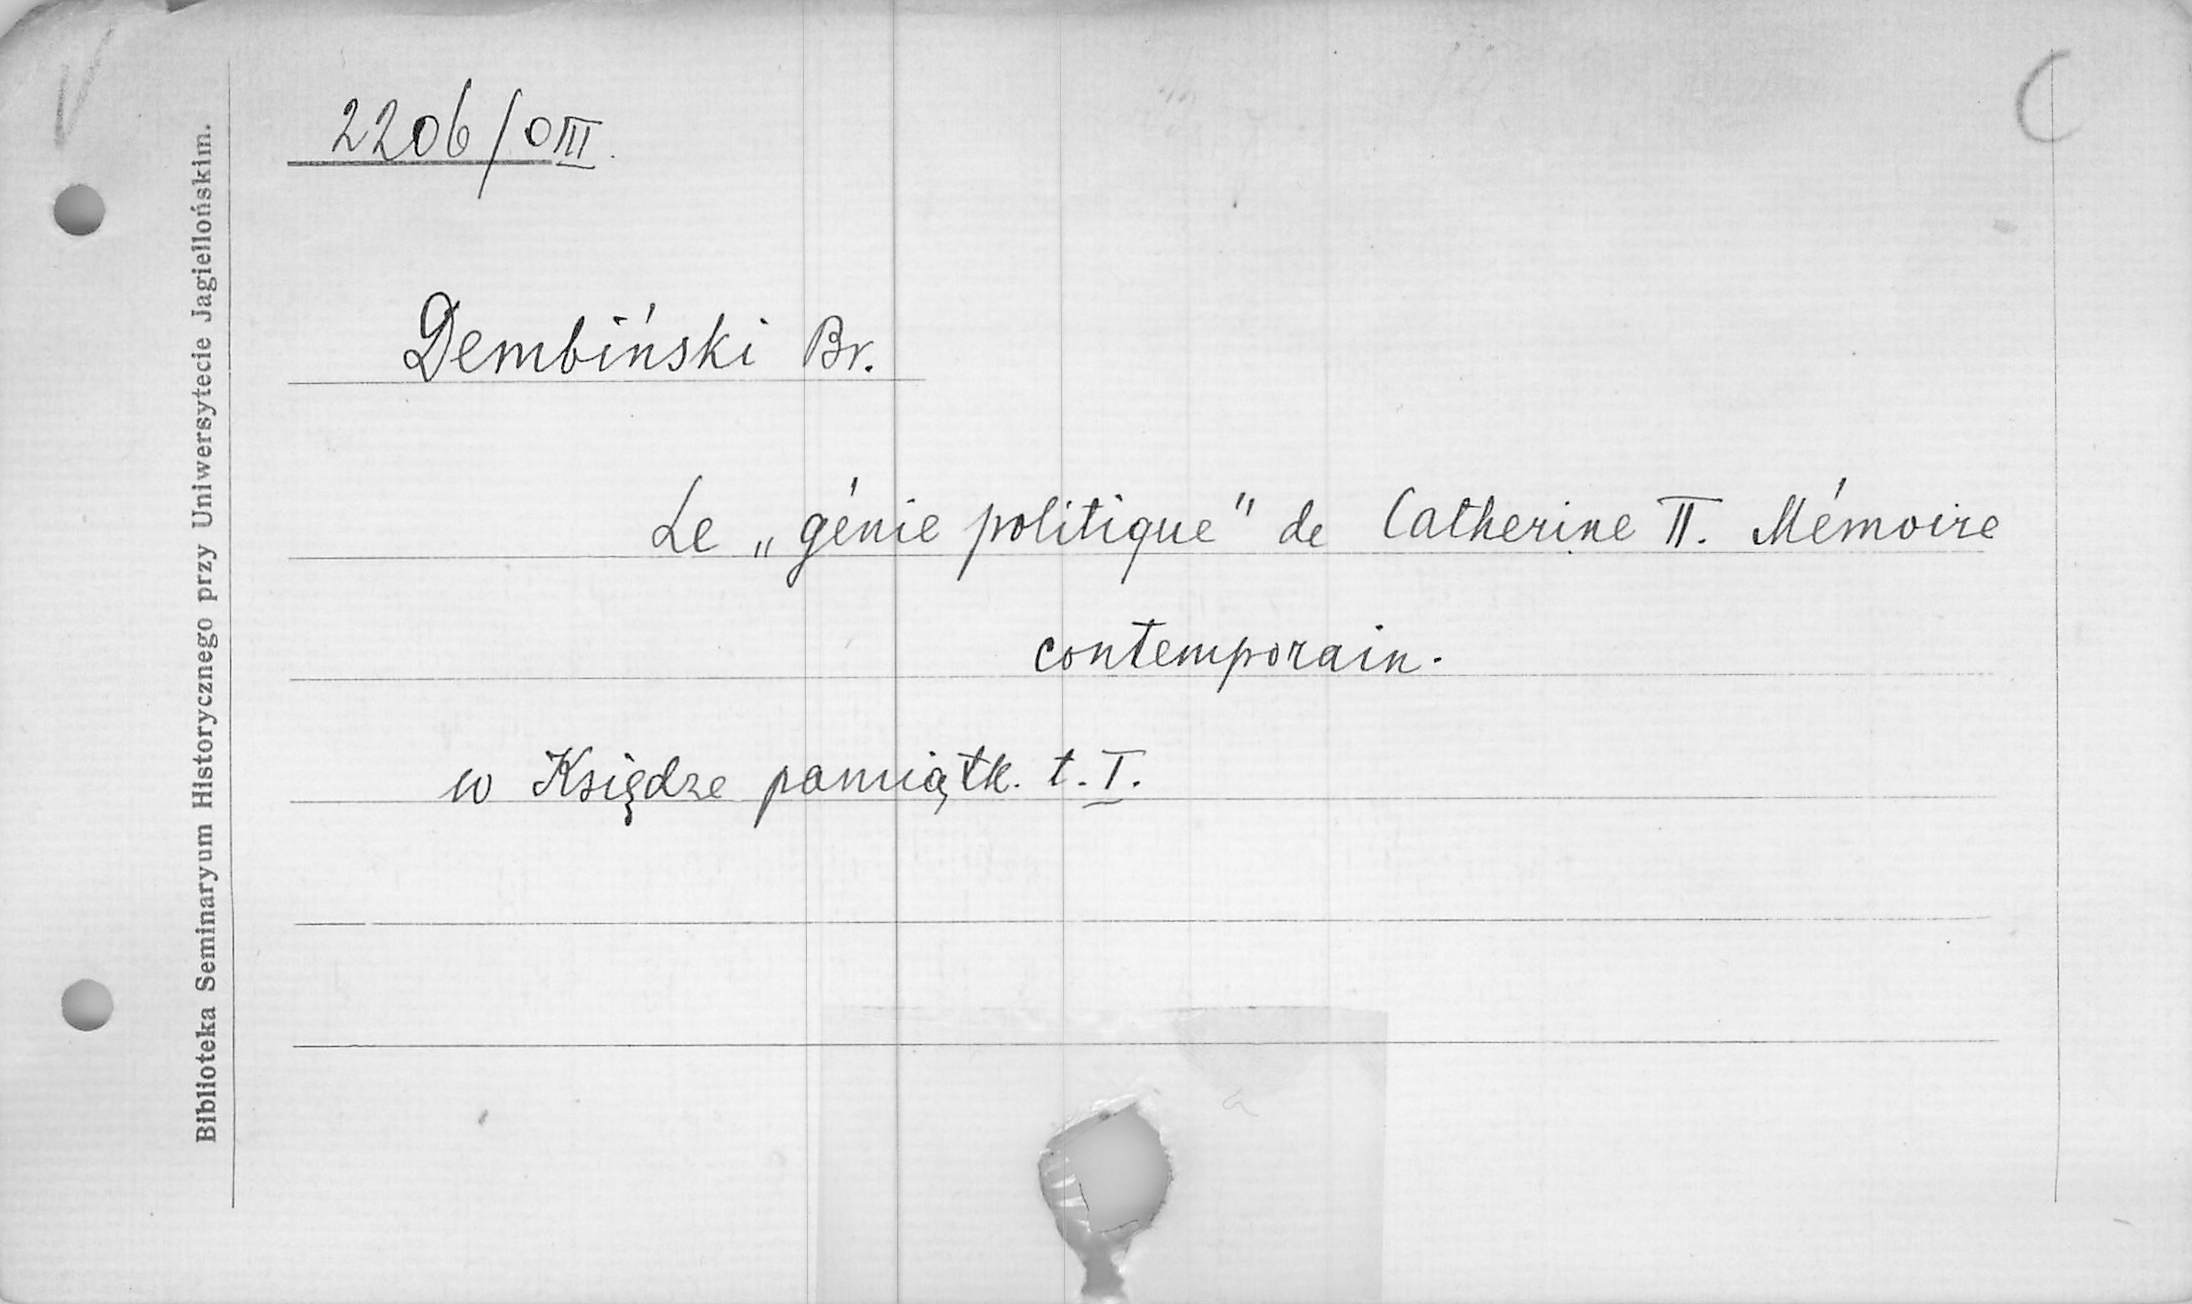 2206/OIII.
C
Biblioteka Seminaryum Historycznego przy Uniwersytecie Jagiellońskim.
Dembiński Br.
Le „génie politique" de Catherine II. Mémoire
contemporain.
w Księdze pamiątk. t. I.